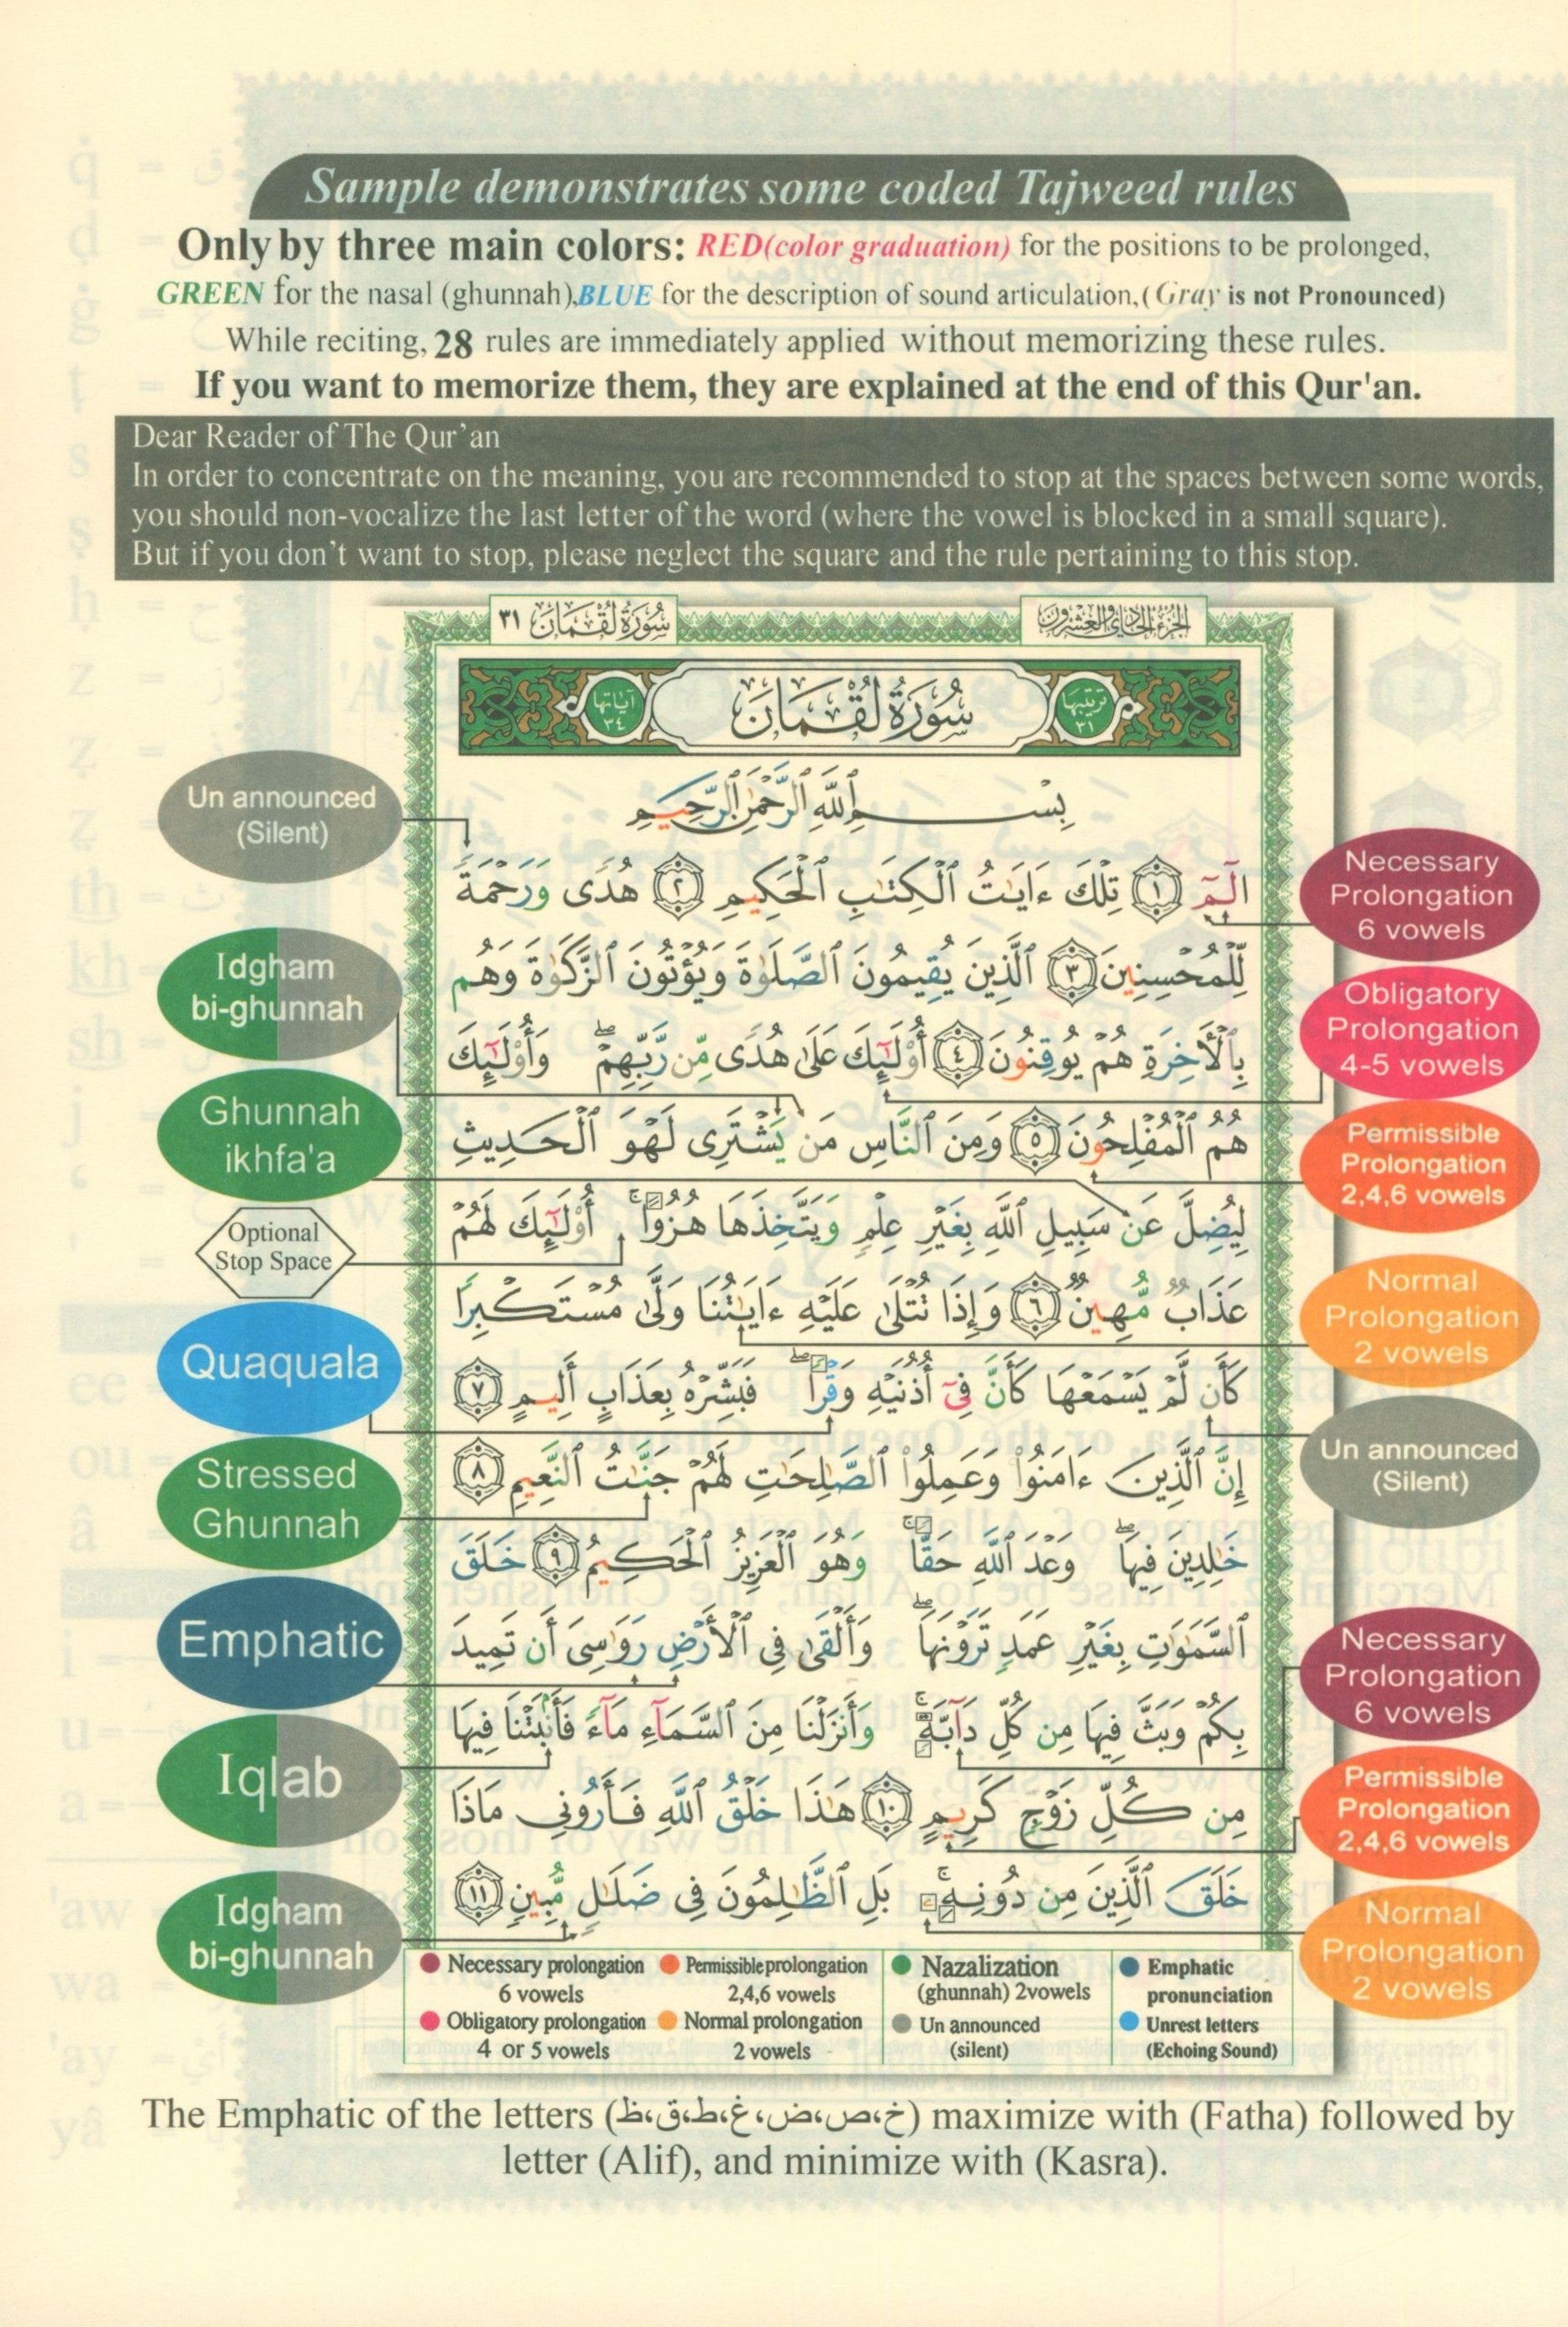 Sample demonstrates some coded Tajweed rules
Only by three main colors: RED(color graduation) for the positions to be prolonged,
GREEN for the nasal (ghunnah),BLUE for the description of sound articulation,(Gray is not Pronounced)
While reciting, 28 rules are immediately applied without memorizing these rules.
If you want to memorize them, they are explained at the end of this Qur'an.
Dear Reader of The Qur'an
In order to concentrate on the meaning, you are recommended to stop at the spaces between some words,
you should non-vocalize the last letter of the word (where the vowel is blocked in a small square).
But if you don't want to stop, please neglect the square and the rule pertaining to this stop.
الجزء الحادي والعشرون
سورة لقمان ٣١
ترتيبها ٣١
سُورَةُ لُقْمَانَ
آياتها ٣٤
بِسْمِ ٱللَّهِ ٱلرَّحْمَٰنِ ٱلرَّحِيمِ
الٓمٓ ١ تِلْكَ ءَايَٰتُ ٱلْكِتَٰبِ ٱلْحَكِيمِ ٢ هُدًى وَرَحْمَةً
لِّلْمُحْسِنِينَ ٣ ٱلَّذِينَ يُقِيمُونَ ٱلصَّلَوٰةَ وَيُؤْتُونَ ٱلزَّكَوٰةَ وَهُم
بِٱلْأَخِرَةِ هُمْ يُوقِنُونَ ٤ أُوْلَٰٓئِكَ عَلَىٰ هُدًى مِّن رَّبِّهِمْ ۖ وَأُوْلَٰٓئِكَ
هُمُ ٱلْمُفْلِحُونَ ٥ وَمِنَ ٱلنَّاسِ مَن يَشْتَرِى لَهْوَ ٱلْحَدِيثِ
لِيُضِلَّ عَن سَبِيلِ ٱللَّهِ بِغَيْرِ عِلْمٍ وَيَتَّخِذَهَا هُزُوًا ۚ أُوْلَٰٓئِكَ لَهُمْ
عَذَابٌ مُّهِينٌ ٦ وَإِذَا تُتْلَىٰ عَلَيْهِ ءَايَٰتُنَا وَلَّىٰ مُسْتَكْبِرًا
كَأَن لَّمْ يَسْمَعْهَا كَأَنَّ فِىٓ أُذُنَيْهِ وَقْرًا ۖ فَبَشِّرْهُ بِعَذَابٍ أَلِيمٍ ٧
إِنَّ ٱلَّذِينَ ءَامَنُوا۟ وَعَمِلُوا۟ ٱلصَّٰلِحَٰتِ لَهُمْ جَنَّٰتُ ٱلنَّعِيمِ ٨
خَٰلِدِينَ فِيهَا ۖ وَعْدَ ٱللَّهِ حَقًّا ۚ وَهُوَ ٱلْعَزِيزُ ٱلْحَكِيمُ ٩ خَلَقَ
ٱلسَّمَٰوَٰتِ بِغَيْرِ عَمَدٍ تَرَوْنَهَا ۖ وَأَلْقَىٰ فِى ٱلْأَرْضِ رَوَٰسِىَ أَن تَمِيدَ
بِكُمْ وَبَثَّ فِيهَا مِن كُلِّ دَآبَّةٍ ۚ وَأَنزَلْنَا مِنَ ٱلسَّمَآءِ مَآءً فَأَنۢبَتْنَا فِيهَا
مِن كُلِّ زَوْجٍ كَرِيمٍ ١٠ هَٰذَا خَلْقُ ٱللَّهِ فَأَرُونِى مَاذَا
خَلَقَ ٱلَّذِينَ مِن دُونِهِ ۚ بَلِ ٱلظَّٰلِمُونَ فِى ضَلَٰلٍ مُّبِينٍ ١١
Un announced
(Silent)
Idgham
bi-ghunnah
Ghunnah
ikhfa'a
Optional
Stop Space
Quaquala
Stressed
Ghunnah
Emphatic
Iqlab
Idgham
bi-ghunnah
Necessary
Prolongation
6 vowels
Obligatory
Prolongation
4-5 vowels
Permissible
Prolongation
2,4,6 vowels
Normal
Prolongation
2 vowels
Un announced
(Silent)
Necessary
Prolongation
6 vowels
Permissible
Prolongation
2,4,6 vowels
Normal
Prolongation
2 vowels
Necessary prolongation
6 vowels
Permissible prolongation
2,4,6 vowels
Nazalization
(ghunnah) 2vowels
Emphatic
pronunciation
Obligatory prolongation
4 or 5 vowels
Normal prolongation
2 vowels
Un announced
(silent)
Unrest letters
(Echoing Sound)
The Emphatic of the letters (خ،ص،ض،غ،ط،ق،ظ) maximize with (Fatha) followed by
letter (Alif), and minimize with (Kasra).